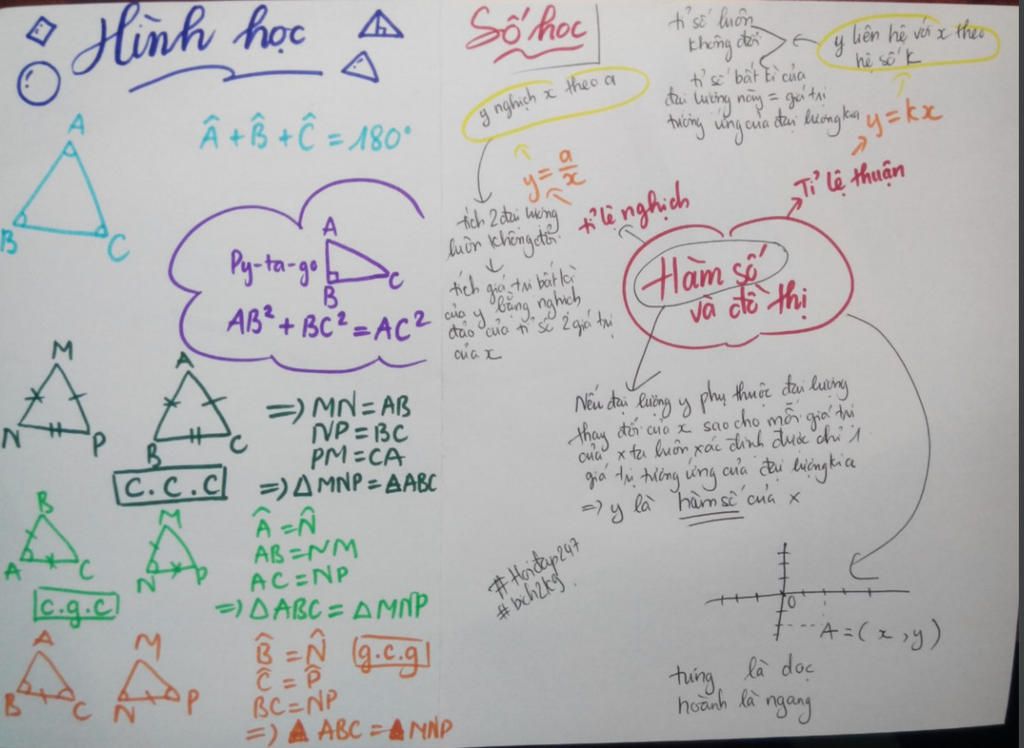 Hình học
A
B
C
Â + B̂ + Ĉ = 180°
Py-ta-go
A
B
C
AB² + BC² = AC²
M
N
P
A
B
C
=> MN = AB
NP = BC
PM = CA
C.C.C
=> △ MNP = △ABC
B
A
C
M
N
P
c.g.c
Â = N̂
AB = NM
AC = NP
=> △ ABC = △ MNP
A
B
C
M
N
P
B̂ = N̂
g.c.g
Ĉ = P̂
BC = NP
=> △ ABC = △ MNP
Số học
y nghịch x theo a
y = a/x
tích 2 đại lượng
luôn không đổi
tích giá trị bất kì
của y bằng nghịch
đảo của tỉ số 2 giá trị
của x
tỉ lệ nghịch
tỉ số luôn
không đổi
tỉ số bất kì của
đại lượng này = giá trị
tương ứng của đại lượng kia
y liên hệ với x theo
hệ số k
y = kx
Tỉ lệ thuận
Hàm số
và đồ thị
Nếu đại lượng y phụ thuộc đại lượng
thay đổi của x sao cho mỗi giá trị
của x ta luôn xác định được chỉ 1
giá trị tương ứng của đại lượng kia
=> y là hàm số của x
#Hoidap247
#bich2kg
0
A = (x, y)
tung là dọc
hoành là ngang